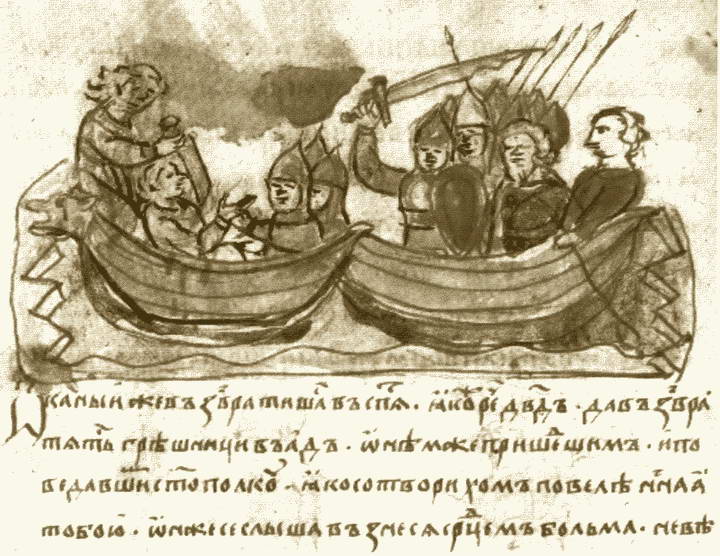 Ѡкан҇ныи же въꙁвратишаⷭ҇ въспѧⷮ · ꙗко реⷱ҇ дв҃дъ · да въꙁвра
тѧтьⷭ҇ грѣшници въ адъ · ѡнѣм же пришеⷣшимъ · и по
ведавшиⷨ ст҃ополкоу · ꙗко сотворихомъ повелѣннаꙗ
тобою · ѡн же се слышавъ ꙁнесесѧ срⷣцемъ больма · не вѣ